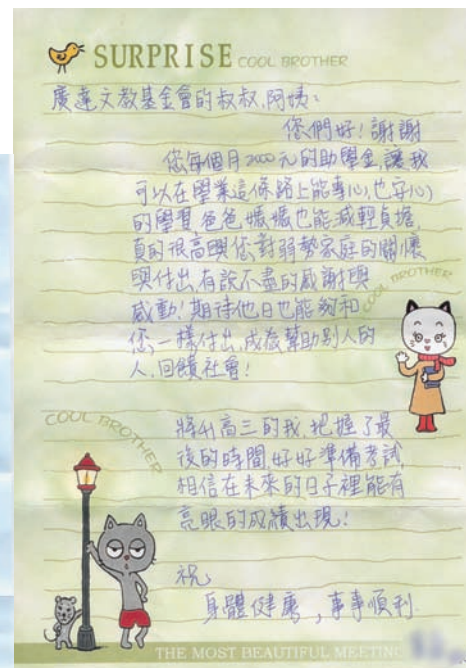 SURPRISE COOL BROTHER
廣達文教基金會的叔叔、阿姨：
您們好！謝謝
您每個月2000元的助學金，讓我
可以在學業這條路上能專心，也安心
的學習，爸爸媽媽也能減輕負擔，
真的很高興您對弱勢家庭的關懷
與付出，有說不盡的感謝與
感動！期待他日也能夠和
COOL BROTHER
您一樣付出，成為幫助別人的
人，回饋社會！
COOL BROTHER
將升高三的我，把握了最
後的時間，好好準備考試
相信在未來的日子裡能有
亮眼的成績出現！
祝
身體健康，事事順利
THE MOST BEAUTIFUL MEETING